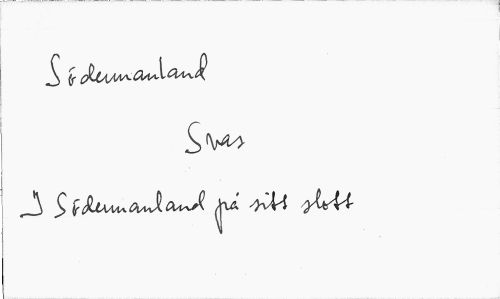 Södermanland
Svar
I Södermanland på sitt slott